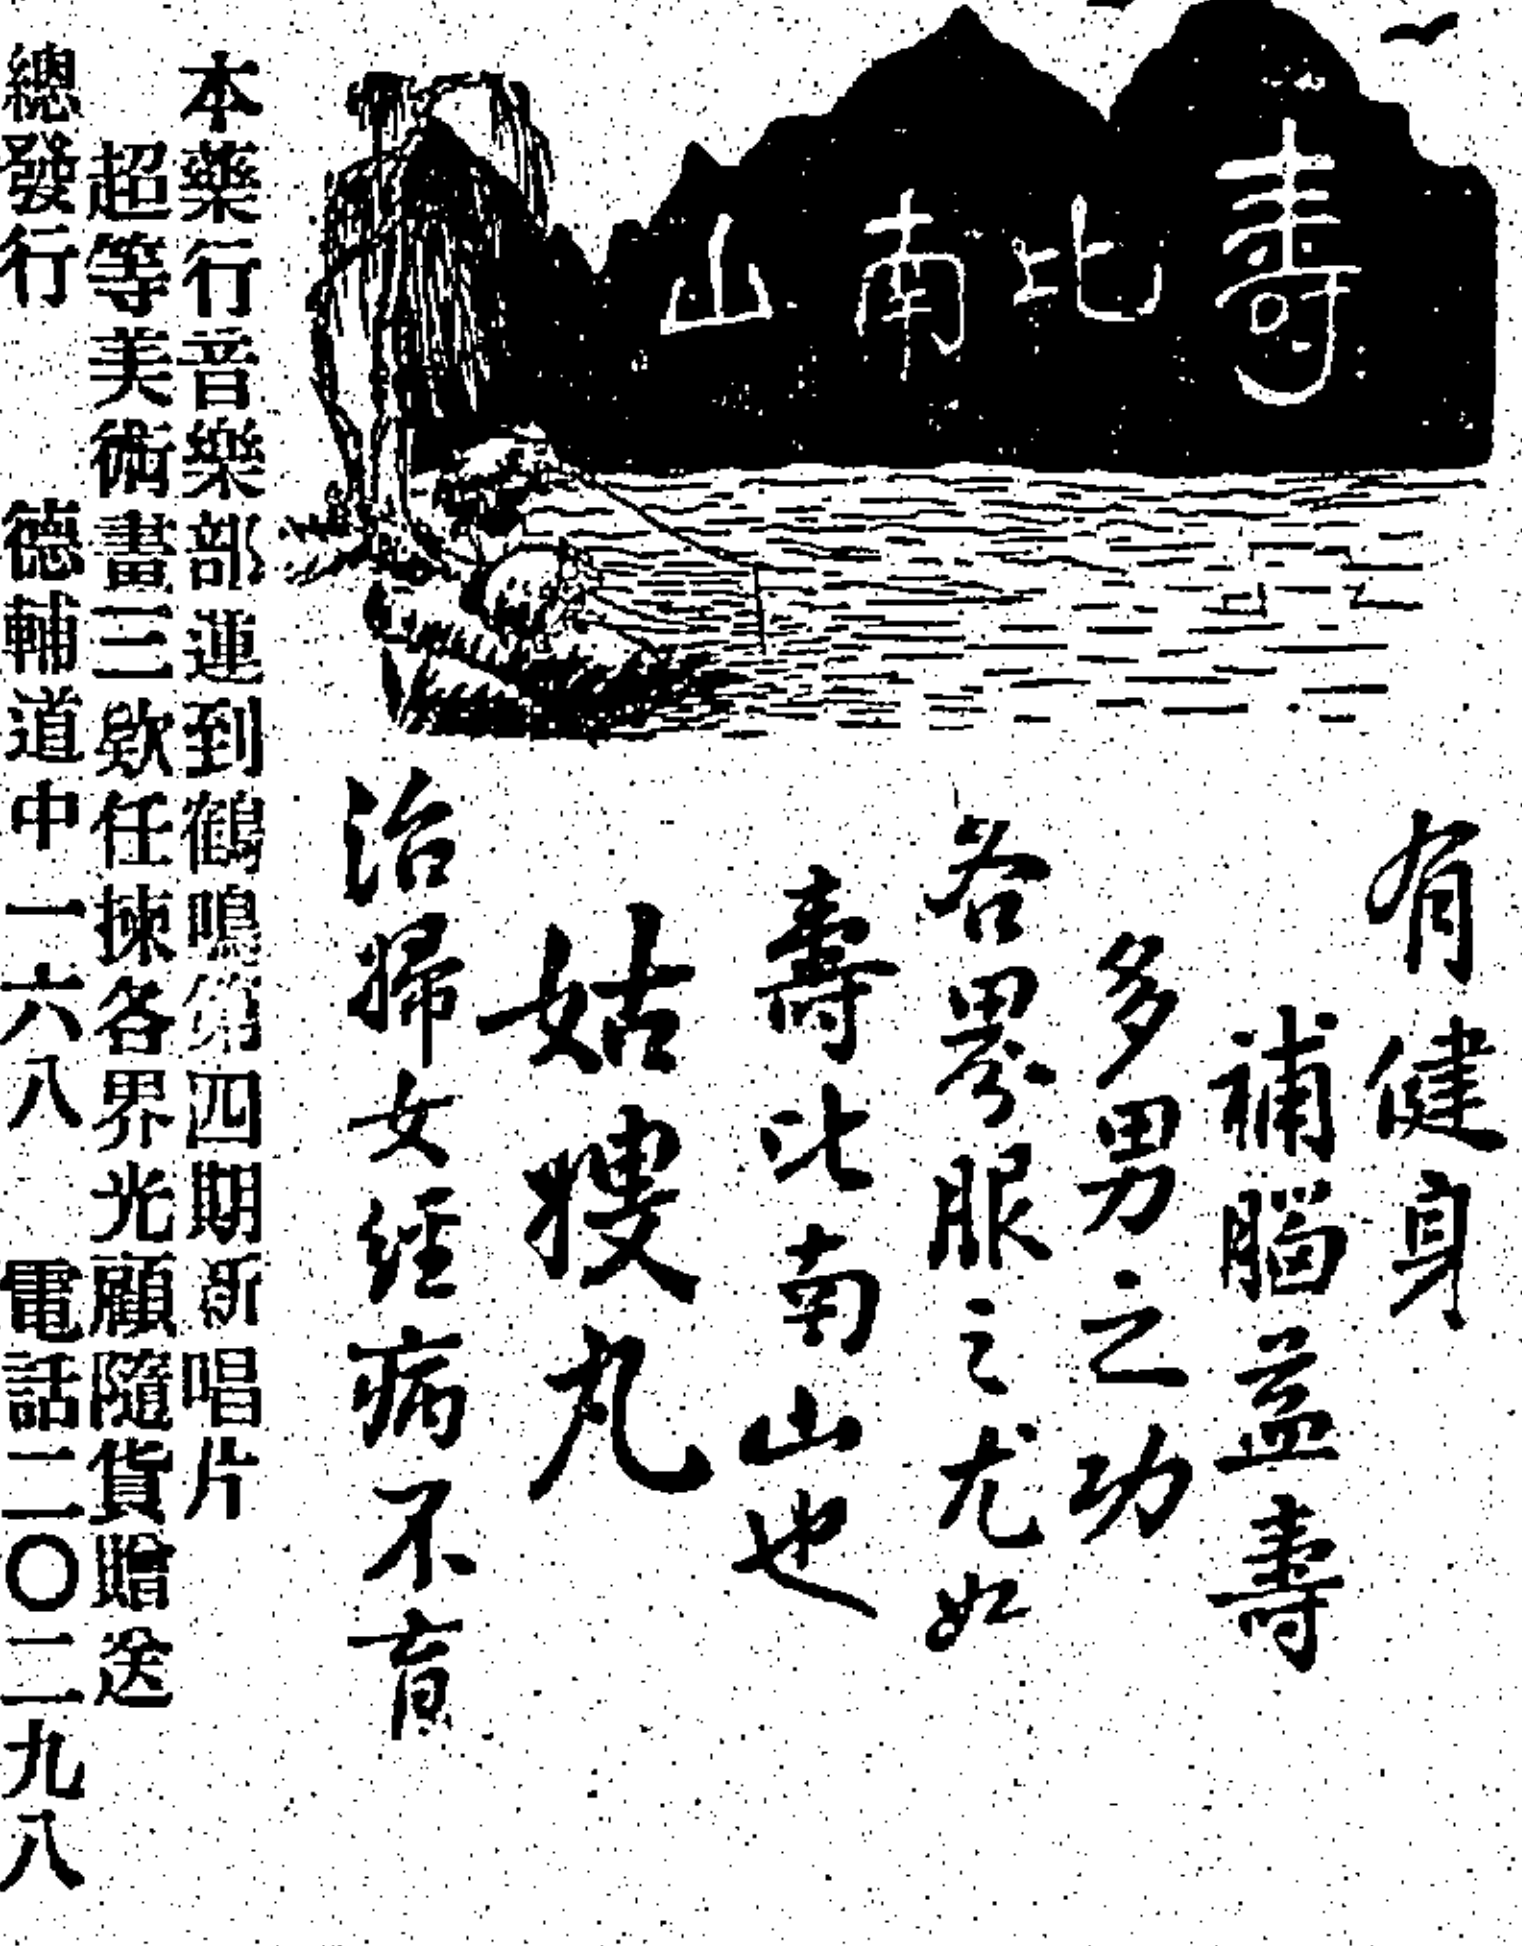 壽比南山
有健身
補腦益壽
多男之功
各界服之尤如
壽比南山也
姑嫂丸
治婦女經病不育
本藥行音樂部運到鶴鳴第四期新唱片
超等美術畫三欵任揀各界光顧隨貨贈送
總發行 德輔道中一六八 電話二〇二九八